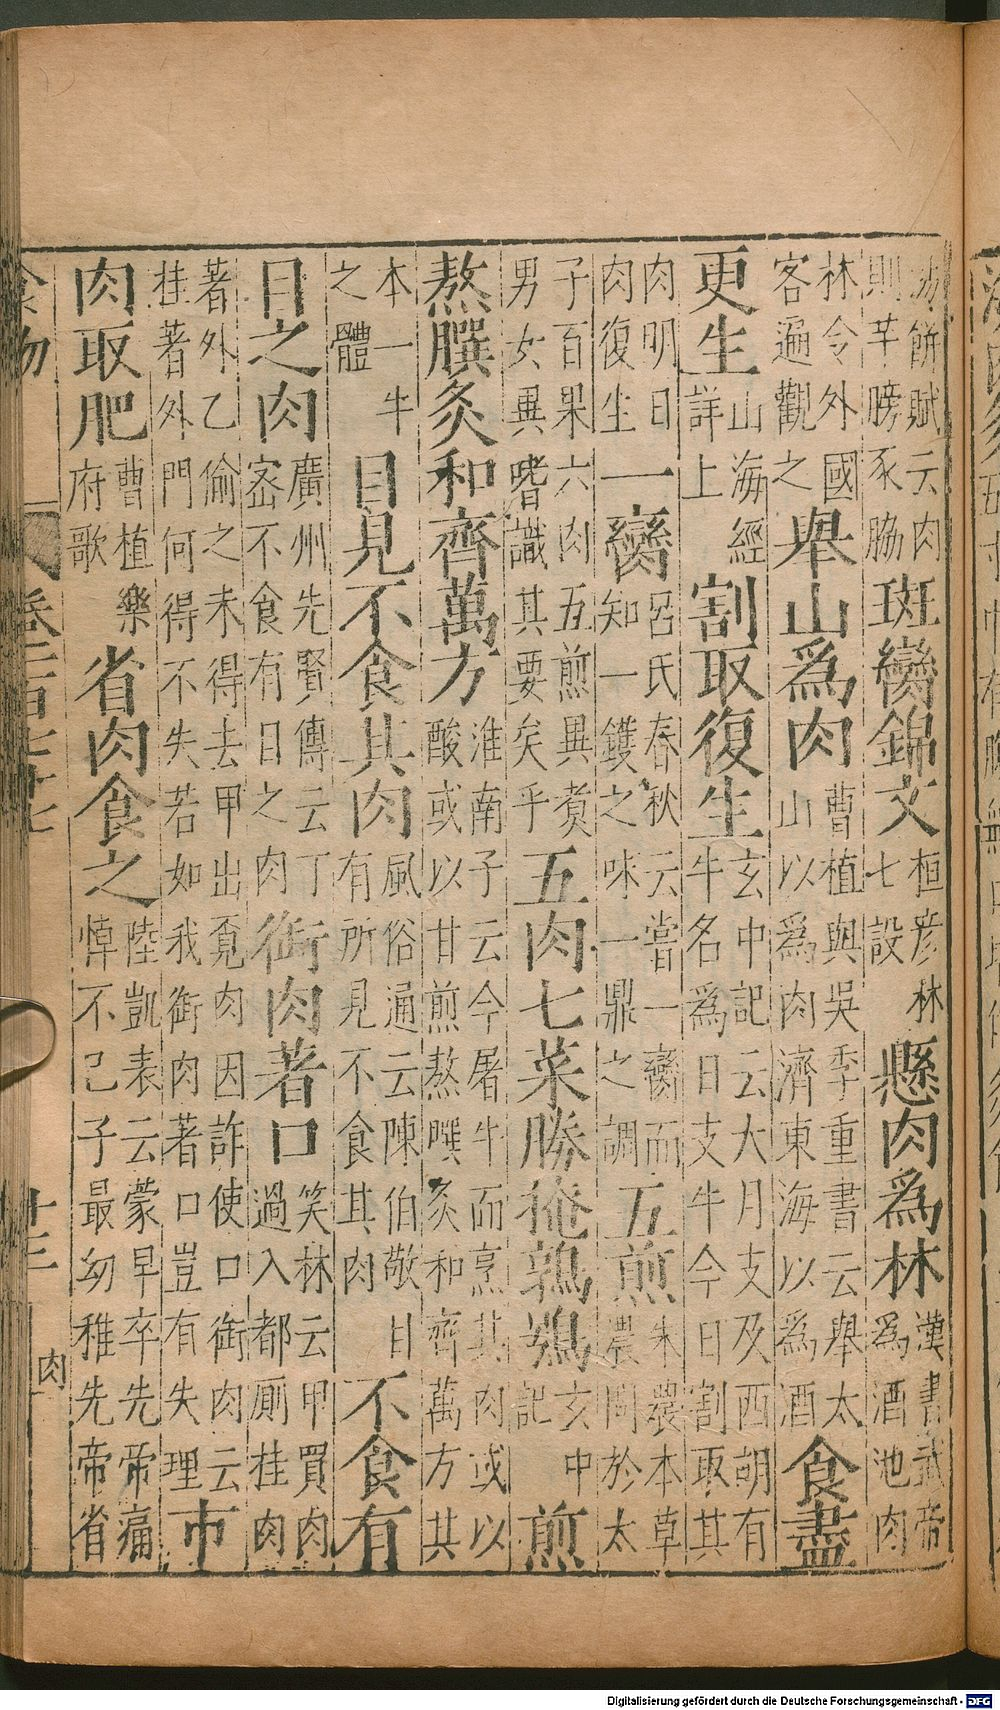 湯餅賦云肉
則羊膀豕脇
斑臠錦文
桓彦林
七設
懸肉爲林
漢書武帝
爲酒池肉
林令外國
客遍觀之
舉山爲肉
曹植與吳季重書云舉太
山以爲肉濟東海以爲酒
食盡
更生
山海經
詳上
割取復生
玄中記云大月支及西胡有
牛名爲日支牛今日割取其
肉明日
肉復生
一臠
呂氏春秋云嘗一臠而
知一鑊之味一鼎之調
五煎
本草
農問於太
子百果六肉五煎異煑
男女異嗜識其要矣乎
五肉七菜勝掩鶉鷃
玄中
記
煎
熬炙和齊萬方
淮南子云今屠牛而烹其肉或以
酸或以甘煎熬炙和齊萬方其
本一牛
之體
目見不食其肉
風俗通云陳伯敬目
有所見不食其肉
不食有
日之肉
廣州先賢傳云丁
密不食有日之肉
銜肉著口
笑林云甲買肉
過入都厠挂肉
著外乙偷之未得去甲出覔肉因詐使口銜肉云
挂著外門何得不失若如我銜肉著口豈有失理
市
肉取肥
曹植樂
府歌
省肉食之
陸凱表云蒙早卒先帝痛
悼不已子最幼稚先帝省
食物
十三
肉
Digitalisierung gefördert durch die Deutsche Forschungsgemeinschaft - DFG